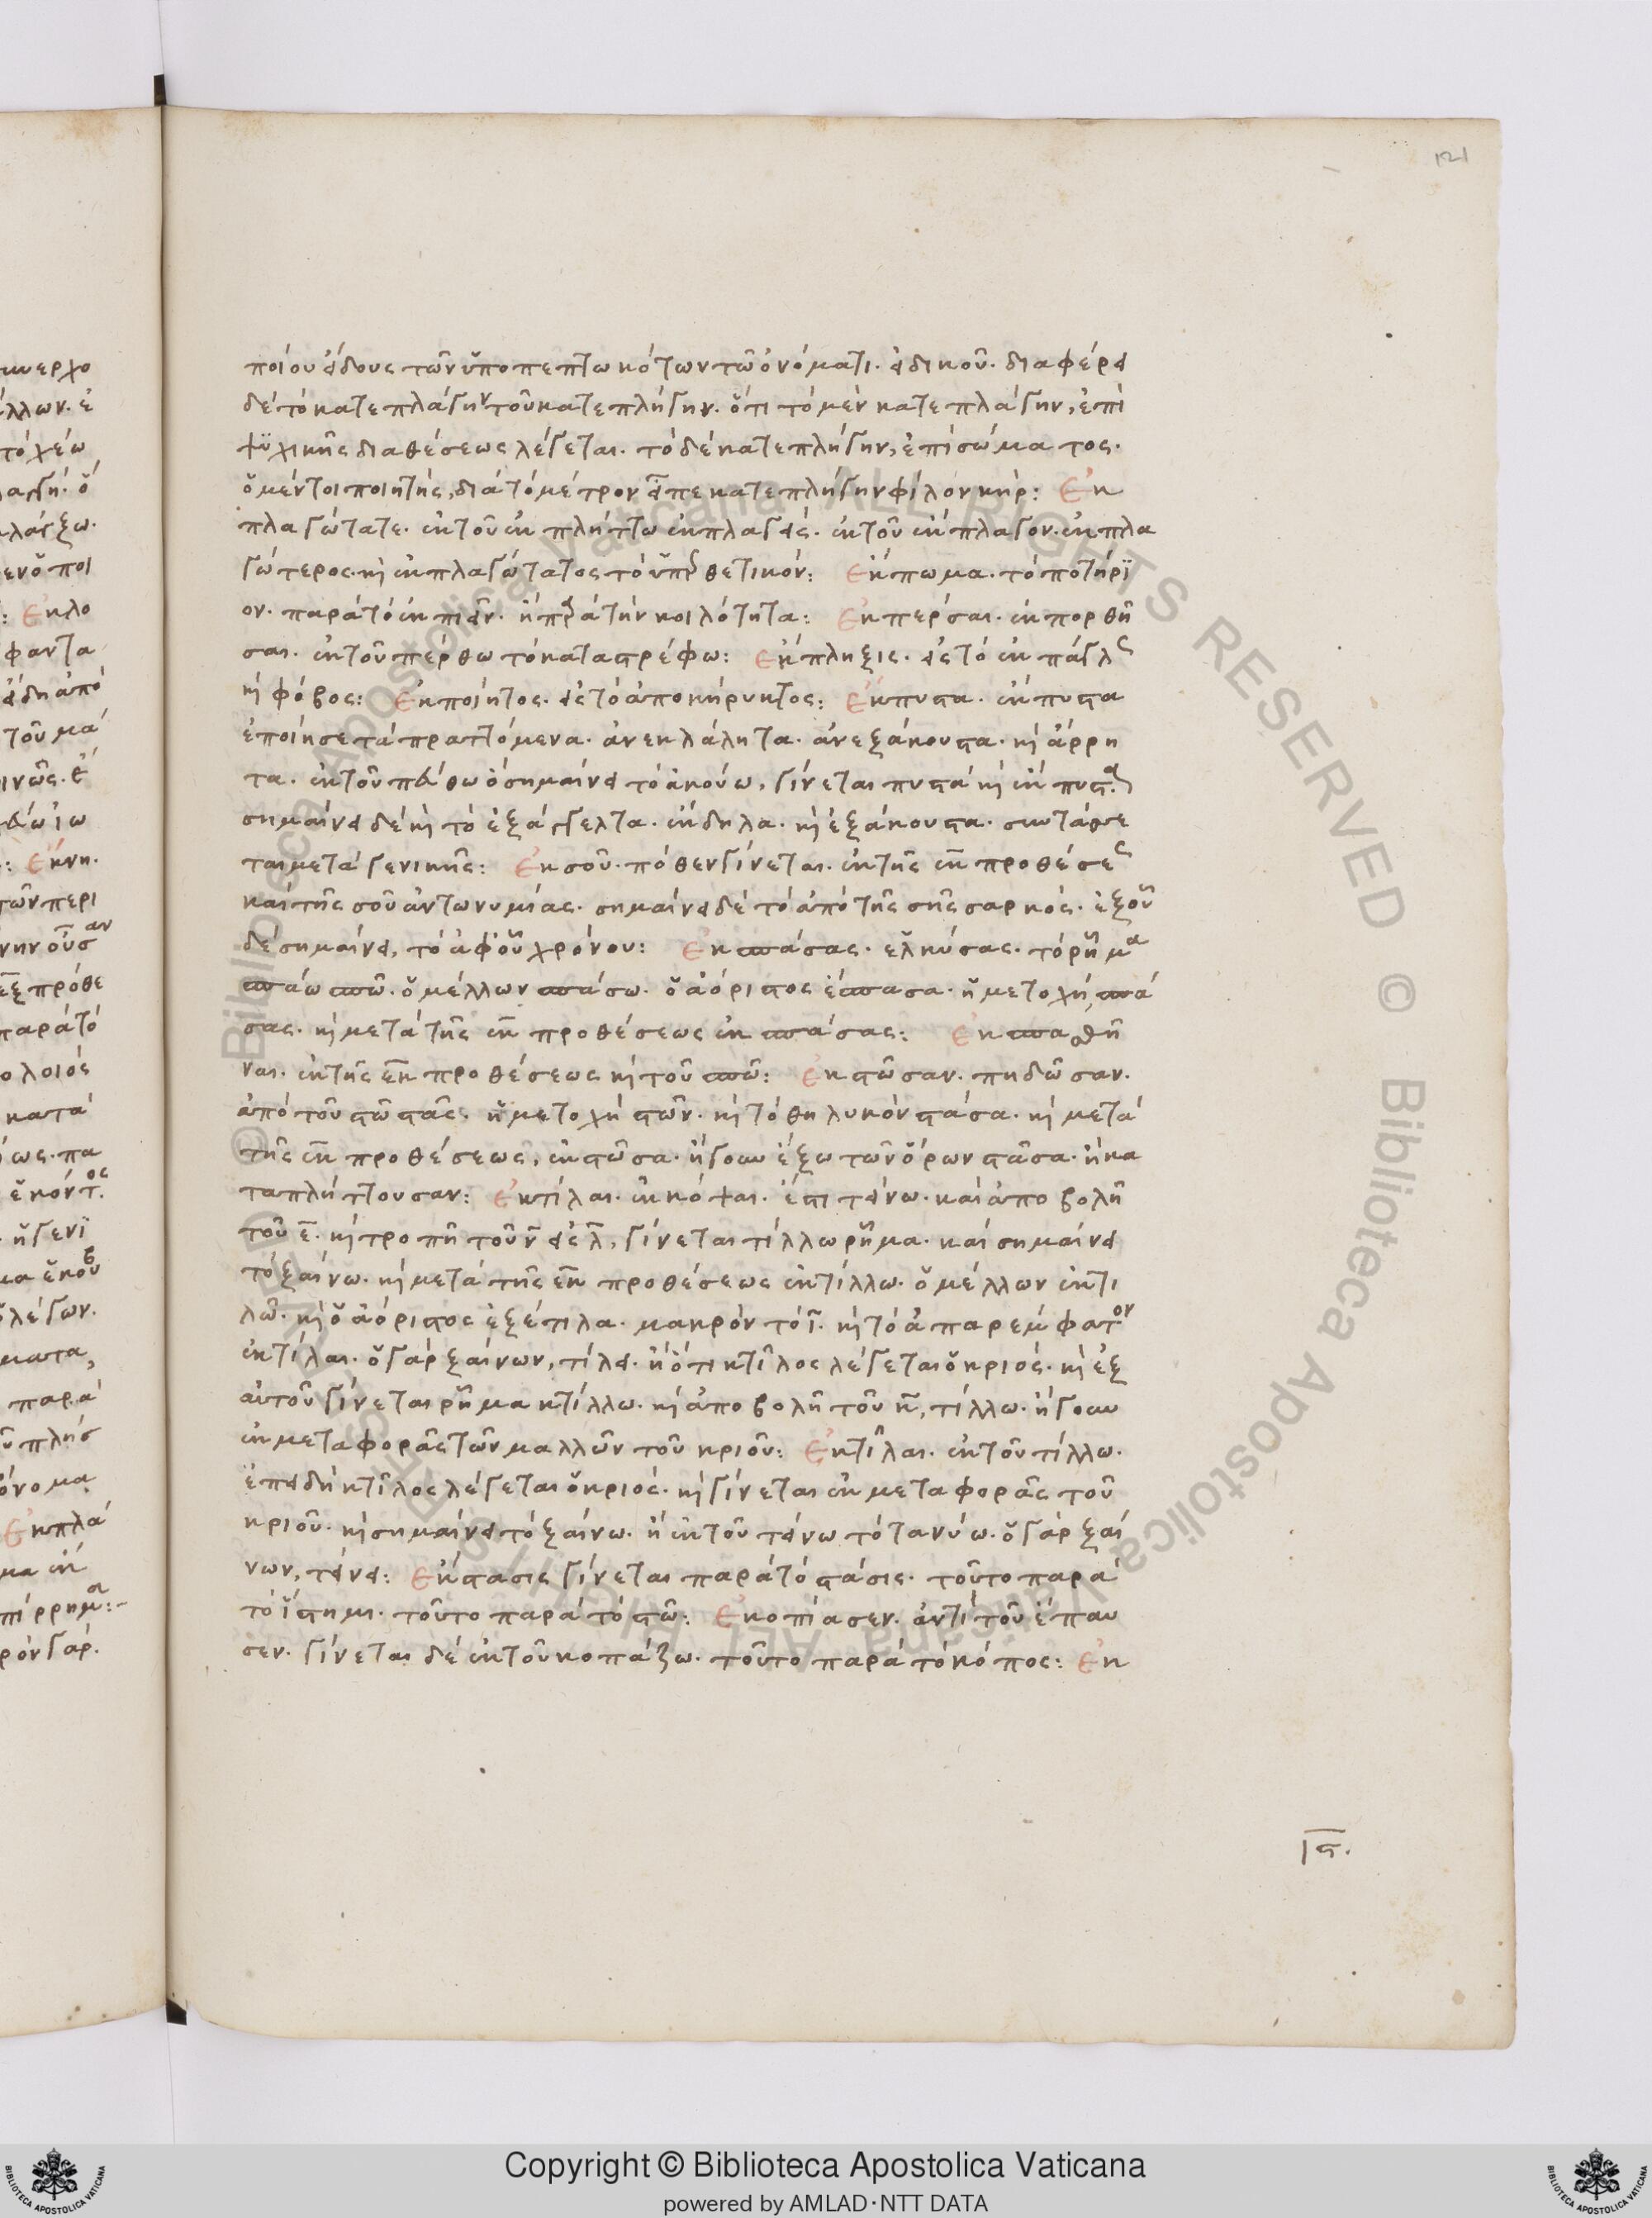 121
ποίου είδους τῶν ὑποπεπτωκότων τῶ ὀνόματι· εἰδικοῦ· διαφέρει
δὲ τὸ κατεπλάγην τοῦ κατεπλήγην· ὅτι τὸ μὲν κατεπλάγην, ἐπὶ
ψυχικῆς διαθέσεως λέγεται· τὸ δὲ κατεπλήγην, ἐπὶ σώματος·
ὁ μέντοι ποιητὴς, διὰ τὸ μέτρον εἶπε κατεπλήγην φίλον κῆρ: Ἐκ
πλαγώτατε· ἐκ τοῦ ἐκπλήττω ἐκπλαγείς· ἐκ τοῦ ἔκπλαγον· ἐκπλα
γώτερος· κὶ ἐκπλαγώτατος τὸ ὑπερθετικόν: Ἔκπωμα· τὸ ποτήρϊ
ον· παρὰ τὸ ἐκπιεῖν· ἢ παρὰ τὴν κοιλότητα: Ἐκπέρσαι· ἐκπορθῆ
σαι· ἐκ τοῦ πέρθω τὸ καταστρέφω: Ἔκπληξις· εἰς τὸ ἐκπάγλς
κὶ φόβος: Ἐκποίητος· εἰς τὸ ἀποκήρυκτος: Ἔκπυστα· ἔκπυστα
ἐποίησε τὰ πραττόμενα· ἀνεκλάλητα· ἀνεξάκουστα· κὶ ἄρρη
τα· ἐκ τοῦ πεύθω ὃ σημαίνει τὸ ἀκούω, γίνεται πυστὰ κὶ ἔκπυστα·
σημαίνει δὲ κὶ τὸ ἐξάγγελτα· ἔκδηλα· κὶ ἐξάκουστα· συντάσσε
ται μετὰ γενικῆς: Ἐκ σοῦ· πόθεν γίνεται· ἐκ τῆς ἐκ προθέσες
καὶ τῆς σοῦ ἀντωνυμίας· σημαίνει δὲ τὸ ἀπὸ τῆς σῆς σαρκός· ἐξ οὗ
δὲ σημαίνει, τὸ ἀφ' οὗ χρόνου: Ἐκσπάσας· ἑλκύσας· τὸ ῥῆμα
σπάω σπῶ· ὁ μέλλων σπάσω· ὁ ἀόριστος ἔσπασα· ἡ μετοχὴ, σπά
σας· κὶ μετὰ τῆς ἐκ προθέσεως ἐκσπάσας: Ἐκσπασθῆ
ναι· ἐκ τῆς ἐκ προθέσεως κὶ τοῦ σπῶ: Ἐκστῶσαν· πηδῶσαν·
ἀπὸ τοῦ στῶ στᾶς· ἡ μετοχὴ στῶν· κὶ τὸ θηλυκὸν στάσα· κὶ μετὰ
τῆς ἐκ προθέσεως, ἐκστῶσα· ἤγουν ἔξω τῶν ὅρων στᾶσα· ἢ κα
ταπλήττουσαν: Ἐκτίλαι· ἐκκόψαι· ἔστι τείνω· καὶ ἀποβολῆ
τοῦ ε· κὶ τροπῆ τοῦ ν εἰς λ, γίνεται τίλλω ῥῆμα· καὶ σημαίνει
τὸ ξαίνω· κὶ μετὰ τῆς ἐκ προθέσεως ἐκτίλλω· ὁ μέλλων ἐκτι
λῶ· κὶ ὁ ἀόριστος ἐξέτιλα· μακρὸν τὸ ι· κὶ τὸ ἀπαρέμφατον
ἐκτίλαι· ὁ γὰρ ξαίνων, τίλει· ἢ ὅτι κτῖλος λέγεται ὁ κριός· κὶ ἐξ
αὐτοῦ γίνεται ῥῆμα κτίλλω· κὶ ἀποβολῆ τοῦ κ, τίλλω· ἤγουν
ἐκ μεταφορᾶς τῶν μαλλῶν τοῦ κριοῦ: Ἐκτῖλαι· ἐκ τοῦ τίλλω·
ἐπειδὴ κτῖλος λέγεται ὁ κριός· κὶ γίνεται ἐκ μεταφορᾶς τοῦ
κριοῦ· κὶ σημαίνει τὸ ξαίνω· ἢ ἐκ τοῦ τείνω τὸ τανύω· ὁ γὰρ ξαί
νων, τείνει: Ἔκστασις γίνεται παρὰ τὸ στάσις· τοῦτο παρὰ
τὸ ἵστημι· τοῦτο παρὰ τὸ στῶ: Ἐκόπιασεν· ἀντὶ τοῦ ἔπαυ
σεν· γίνεται δὲ ἐκ τοῦ κοπάζω· τοῦτο παρὰ τὸ κόπος: Ἐκ
ις.
© Biblioteca Apostolica Vaticana ALL RIGHTS RESERVED
Copyright © Biblioteca Apostolica Vaticana
powered by AMLAD·NTT DATA